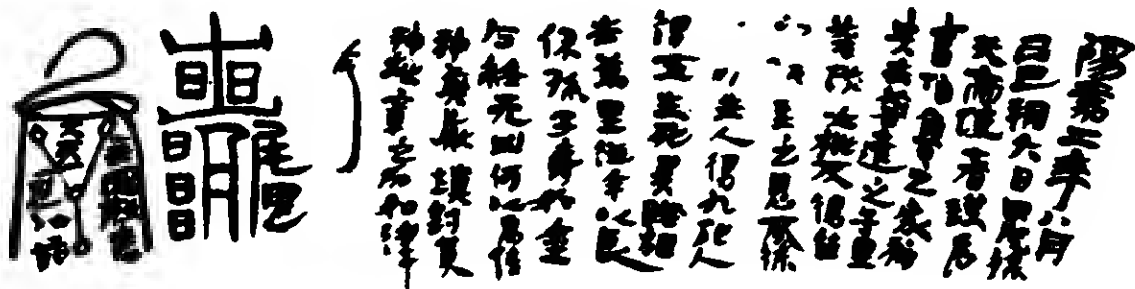 陽嘉二年八月
己巳朔六日甲戌徐
天帝使者謹為
曹伯魯之家移
央去咎遠之千里
咎殃大桃不得留
至之鬼所徐
生人得九死人
得五生死異路相
去萬里從今以長
保孫子壽如金
石終無凶何以為信
神藥厭填封黃
神越章之印如律
令